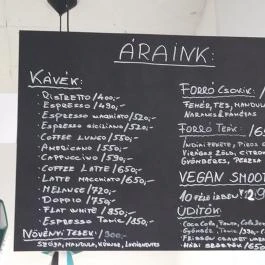 ÁRAINK:
KÁVÉK:
· RISTRETTO /400,-
· ESPRESSO /490,-
· ESPRESSO MACHIATO /520,-
· ESPRESSO SICILIANO /520,-
· COFFEE LUNGO /550,-
· AMERICANO /550,-
· CAPPUCCINO /590,-
· COFFEE LATTE /650,-
· LATTE MACCHIATO /650,-
· MELANGE /720,-
· DOPPIO /750,-
· FLAT WHITE /850,-
· ESPRESSO TONIC /850,-
NÖVÉNYI TEJEK /300,-
SZÓJA, MANDULA, KÓKUSZ, LAKTÓZMENTES
FORRÓ CSOKIK:
FEHÉR, TEJ, MANDULA
NARANCS & FAHÉJAS
FORRÓ TEÁK: /65
INDIAI FEKETE, PIROS
VIRÁGOS ZÖLD, CITROM
GYÖMBÉRES,
VEGAN SMOOT
10 FÉLE ÍZBEN
ÜDÍTŐK:
COCA COLA,
GYÖMBÉR, TONIC /590,-
FRISSEN CSAVART
HÁZI